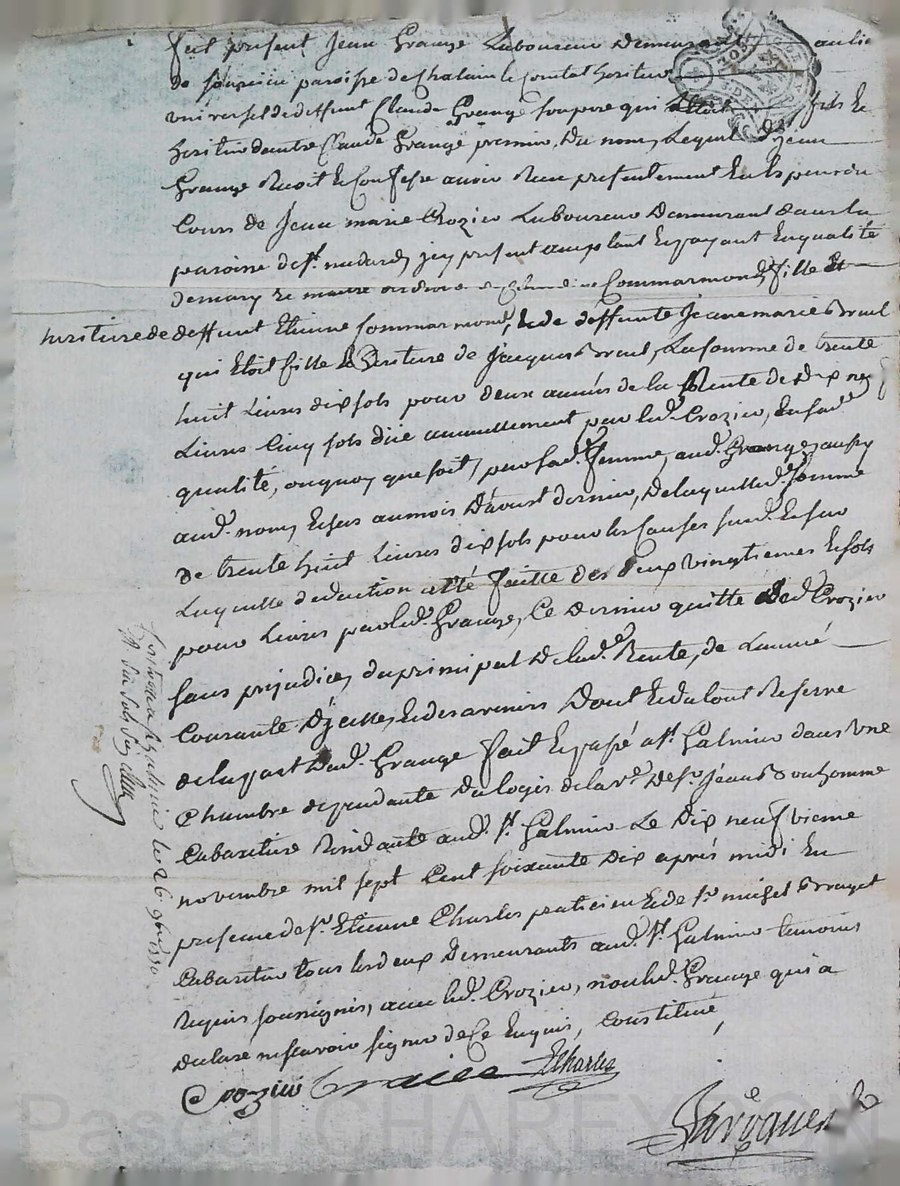 fut présent Jean Grange Laboureur Demeurant au lieu
de paroisse de Chalain le Comtal héritier
universel de deffunt Claude Grange son père qui étoit fils et
héritier d'autre Claude Grange premier du nom, Lequel Jean
Grange Reçoit et Confesse avoir Reçu présentement En Espèces du
Cours de Jean marie Crozier Laboureur Demeurant dans la
paroisse de St. medard, icy présent acceptant Et payant En qualité
de mary et maitre des droits de Commarmond, fille Et
héritière de deffunt Etienne Commarmond, & de deffunte Jeanne marie Breul
qui Etoit fille & héritière de Jacques Breul, La somme de trente
huit Livres dix sols pour deux années de la Rente de dix neuf
Livres Cinq sols düe annuellement par led. Crozier, En sad.
qualité, ou quoy que soit, par sad. femme, aud. Grange, aussy
aud. nom, Echus au mois D'avoust dernier, De laquelle d. somme
de trente huit Livres dix sols pour les Causes susd. Et sur
Laquelle déduction a été faitte des deux vingtiemes Et sols
pour Livres par led. Grange, Ce Dernier quitte led. Crozier
sans préjudice, du principal De lad. Rente, de L'année
Courante D'icelle, Et des avenirs Dont Et du tout Reserve
de la part Dud. Grange fait Et passé a St. Galmier dans Une
Chambre dépendante du logis de la ve. De Sr. Jean Bonhomme
Cabaritière Résidante aud. St. Galmier Le Dix neuf vieme
novembre mil sept Cent soixante Dix après midi En
présence de Sr. Etienne Charles praticien Et de Sr. michel Brunet
Cabaritier tous les deux Demeurants aud. St. Galmier temoins
Requis soussignés, avec led. Crozier, non led. Grange qui a
Declaré ne sçavoir signer de Ce Enquis, Constitué
Crozier Charles
à St. Galmier le 26 9bre 1770